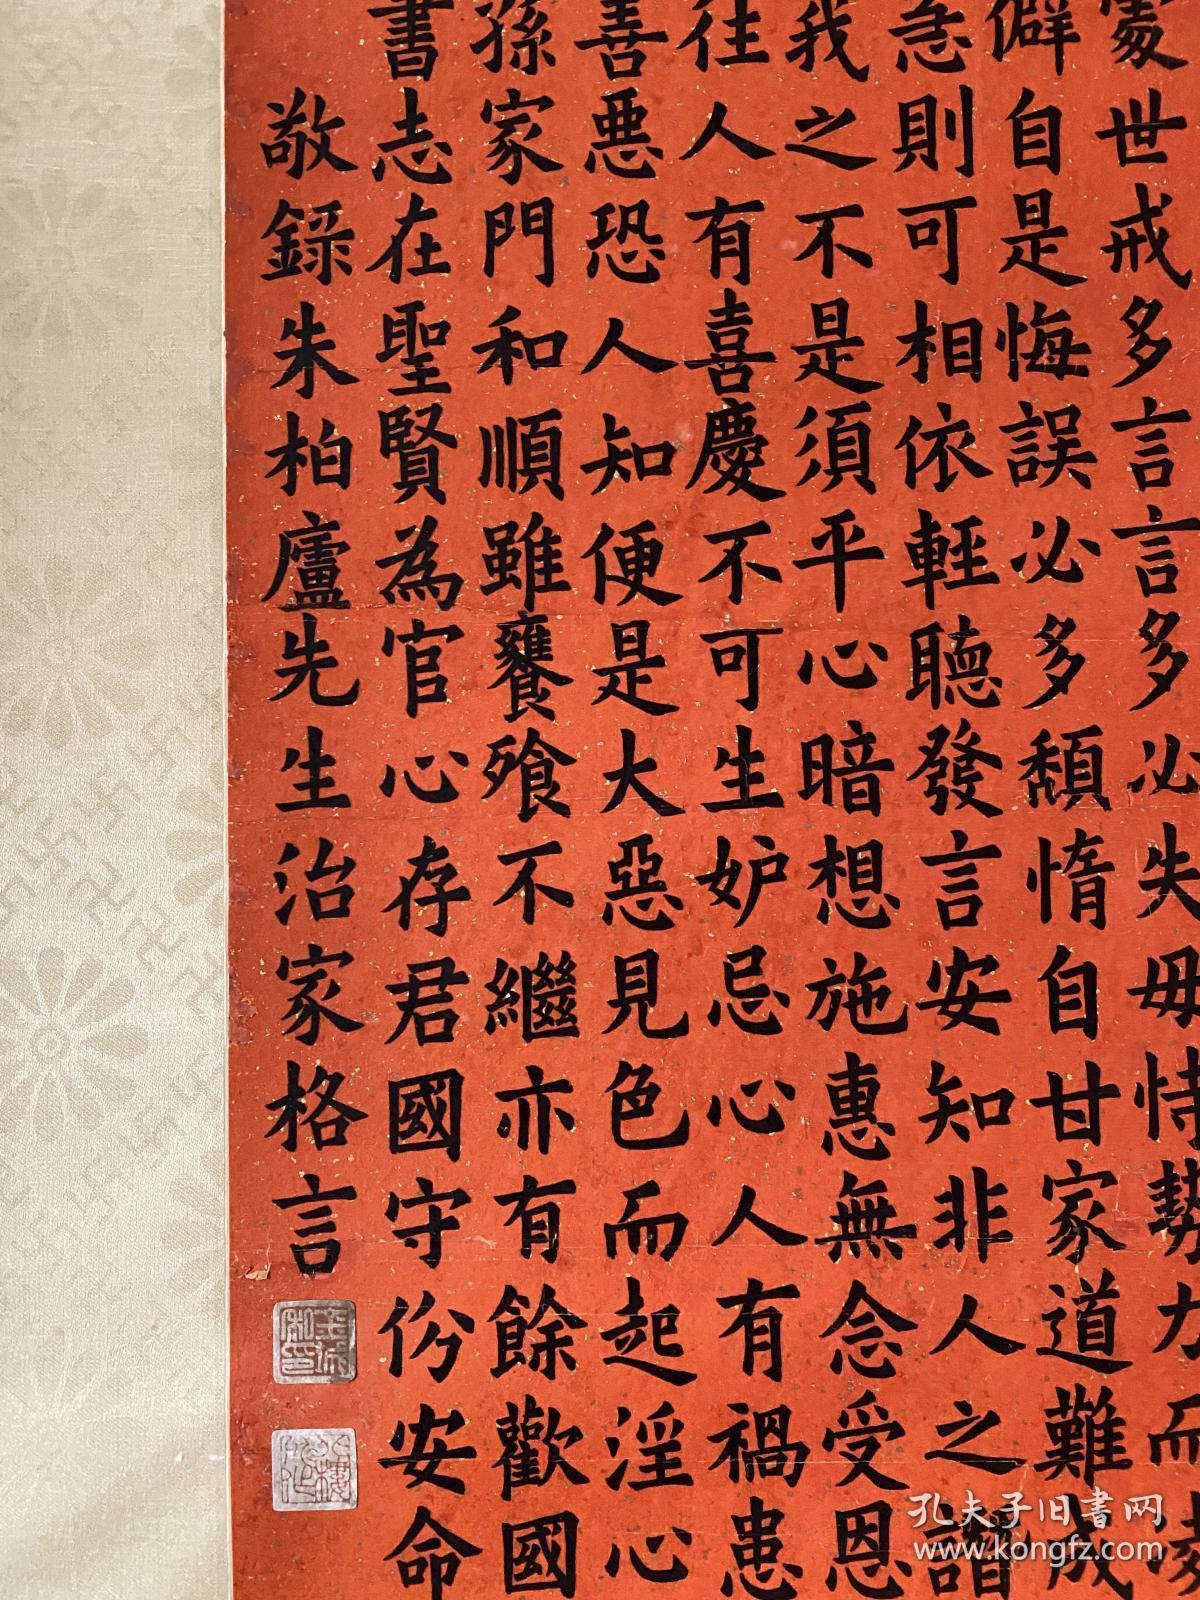 處世戒多言言多必失毋恃勢力而凌
僻自是悔誤必多頹惰自甘家道難成
急則可相依輕聽發言安知非人之譖
我之不是須平心暗想施惠無念受恩
往人有喜慶不可生妒忌心人有禍患
善悪恐人知便是大惡見色而起淫心
孫家門和順雖饔飱不繼亦有餘歡國
書志在聖賢為官心存君國守份安命
敬錄朱柏廬先生治家格言
孔夫子旧書网
www.kongfz.com